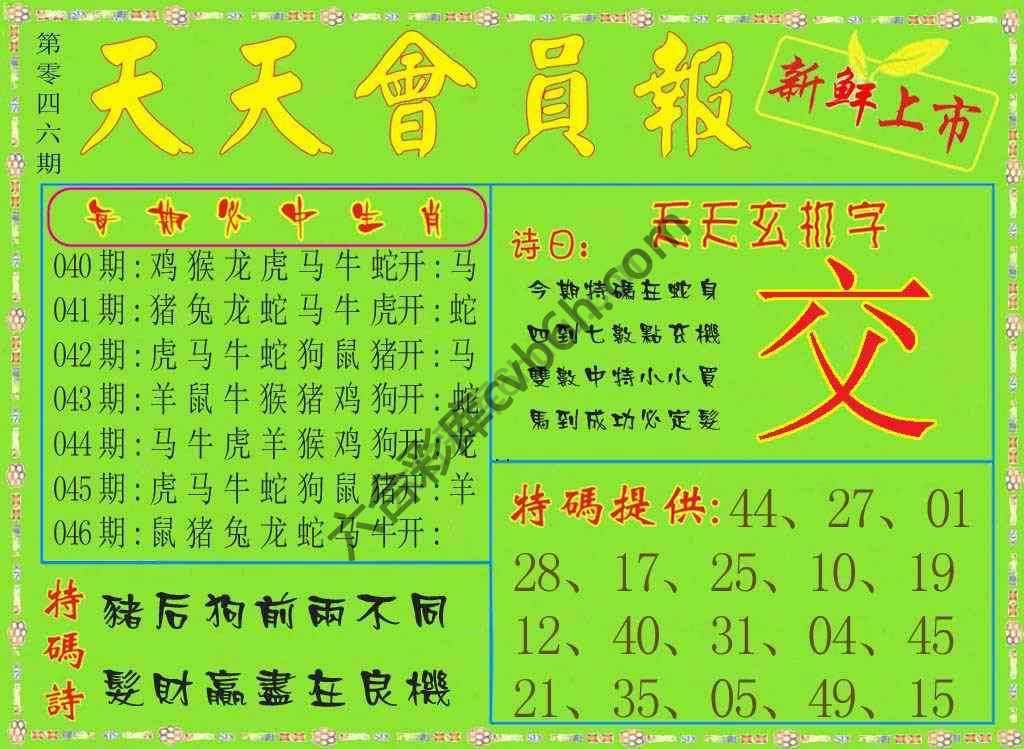 第零四六期
天天會員報
新鮮上市
每期必中生肖
040期:鸡猴龙虎马牛蛇开:马
041期:猪兔龙蛇马牛虎开:蛇
042期:虎马牛蛇狗鼠猪开:马
043期:羊鼠牛猴猪鸡狗开:蛇
044期:马牛虎羊猴鸡狗开:龙
045期:虎马牛蛇狗鼠猪开:羊
046期:鼠猪兔龙蛇马牛开:
特碼詩
豬后狗前兩不同
髮財贏盡在良機
天天玄机字
诗曰:
今期特碼在蛇身
四到七數點玄機
雙數中特小小買
馬到成功必定髮
交
特碼提供:44、27、01
28、17、25、10、19
12、40、31、04、45
21、35、05、49、15
六合彩库cvbch.com